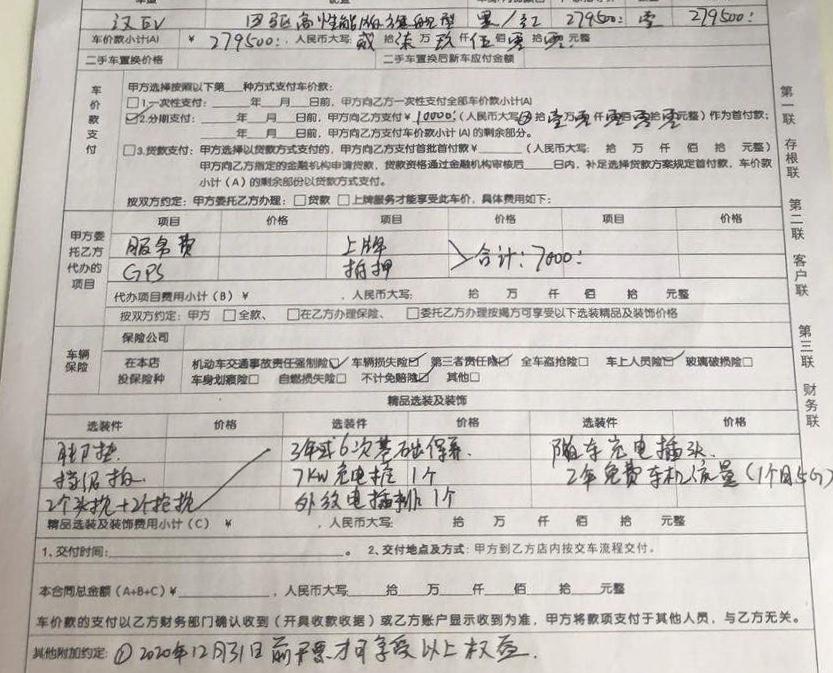 汉EV 四驱高性能版 黑/红 279500: 壹 279500:
车价款小计(A) ¥ 279500: ,人民币大写: 贰 拾 柒 万 玖 仟 伍 佰 零 拾 零 元整
二手车置换价格 二手车置换后新车应付金额
车价款支付
甲方选择按照以下第___种方式支付车价款:
□1.一次性支付:___年___月___日前,甲方向乙方一次性支付全部车价款小计(A)
☑2.分期支付:___年___月___日前,甲方向乙方支付¥ 10000: (人民币大写 拾 壹 万 零 仟 零 佰 零 拾 零 元整)作为首付款;
___年___月___日前,甲方向乙方支付车价款小计(A)的剩余部分。
□3.贷款支付:甲方选择以贷款方式支付的,甲方向乙方支付首批首付款¥______(人民币大写: 拾 万 仟 佰 拾 元整)
甲方向乙方指定的金融机构申请贷款,贷款资格通过金融机构审核后___日内,补足选择贷款方案规定首付款,车价款
小计(A)的剩余部份以贷款方式支付。
按双方约定:甲方委托乙方办理:□贷款 □上牌服务才能享受此车价,具体费用如下:
甲方委托乙方代办的项目
项目 价格 项目 价格 项目 价格
服务费 上牌 合计:7000:
GPS 抵押
代办项目费用小计(B)¥ ,人民币大写: 拾 万 仟 佰 拾 元整
按双方约定:甲方 □全款、□在乙方办理保险、□委托乙方办理按揭方可享受以下选装精品及装饰价格
车辆保险
保险公司
在本店投保险种
机动车交通事故责任强制险☑ 车辆损失险☑ 第三者责任险☑ 全车盗抢险□ 车上人员险☑ 玻璃破损险□
车身划痕险□ 自燃损失险□ 不计免赔险☑ 其他□
精品选装及装饰
选装件 价格 选装件 价格 选装件 价格
脚垫 3年或6次基础保养. 随车充电插头.
挡泥板 7KW充电桩1个 2年免费车机流量(1个月5G)
2个头枕+2个抱枕 外放电插排1个
精品选装及装饰费用小计(C) ¥ ,人民币大写: 拾 万 仟 佰 拾 元整
1、交付时间:______。 2、交付地点及方式:甲方到乙方店内按交车流程交付。
本合同总金额(A+B+C)¥______,人民币大写___拾___万___仟___佰___拾___元整
车价款的支付以乙方财务部门确认收到(开具收款收据)或乙方账户显示收到为准,甲方将款项支付于其他人员,与乙方无关。
其他附加约定:①2020年12月31日前开票才可享受以上权益.
第一联 存根联 第二联 客户联 第三联 财务联